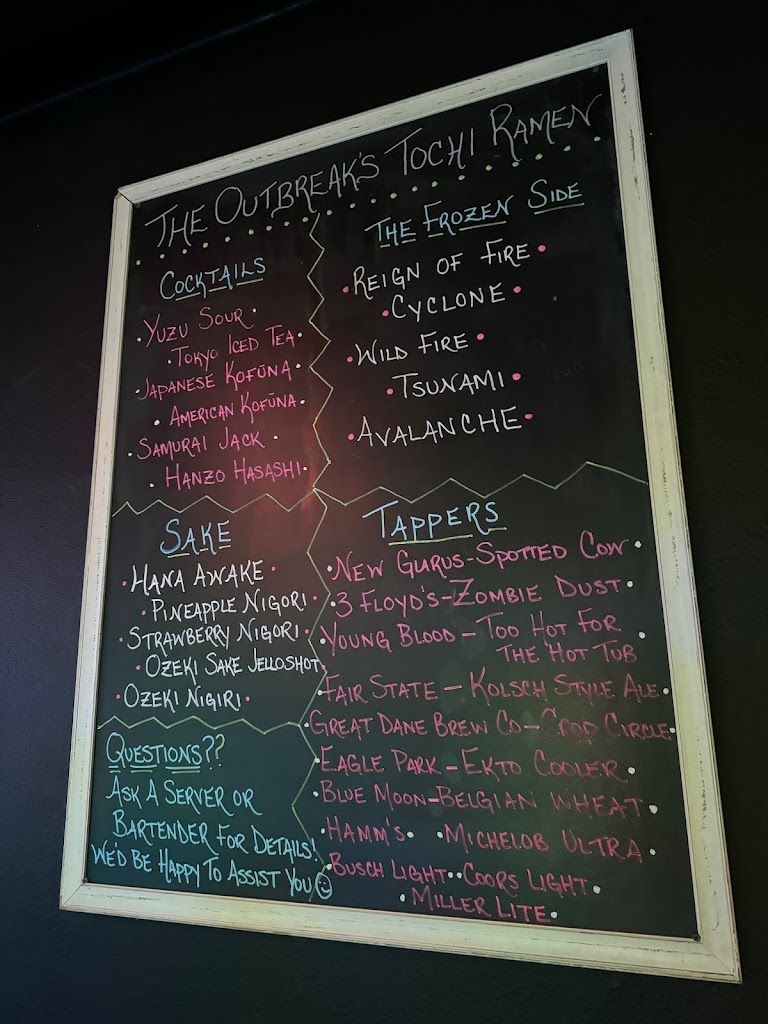 THE OUTBREAK'S TOCHI RAMEN
COCKTAILS
YUZU SOUR
TOKYO ICED TEA
JAPANESE KOFŪNA
AMERICAN KOFŪNA
SAMURAI JACK
HANZO HASASHI
THE FROZEN SIDE
REIGN OF FIRE
CYCLONE
WILD FIRE
TSUNAMI
AVALANCHE
SAKE
HANA AWAKE
PINEAPPLE NIGORI
STRAWBERRY NIGORI
OZEKI SAKE JELLOSHOT
OZEKI NIGIRI
TAPPERS
NEW GLARUS-SPOTTED COW
3 FLOYD'S-ZOMBIE DUST
YOUNG BLOOD-TOO HOT FOR
THE HOT TUB
FAIR STATE-KOLSCH STYLE ALE
GREAT DANE BREW CO-CROP CIRCLE
EAGLE PARK-EKTO COOLER
BLUE MOON-BELGIAN WHEAT
HAMM'S MICHELOB ULTRA
BUSCH LIGHT COORS LIGHT
MILLER LITE
QUESTIONS??
ASK A SERVER OR
BARTENDER FOR DETAILS!
WE'D BE HAPPY TO ASSIST YOU☺